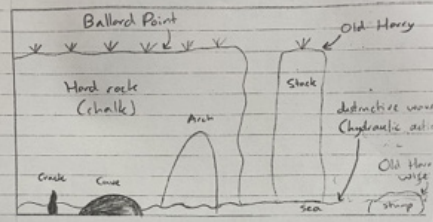 Ballard Point
Old Harry
Hard rock
(chalk)
Stack
Arch
destructive
(hydraulic
Crack
Cave
Old
wife
sea
stump